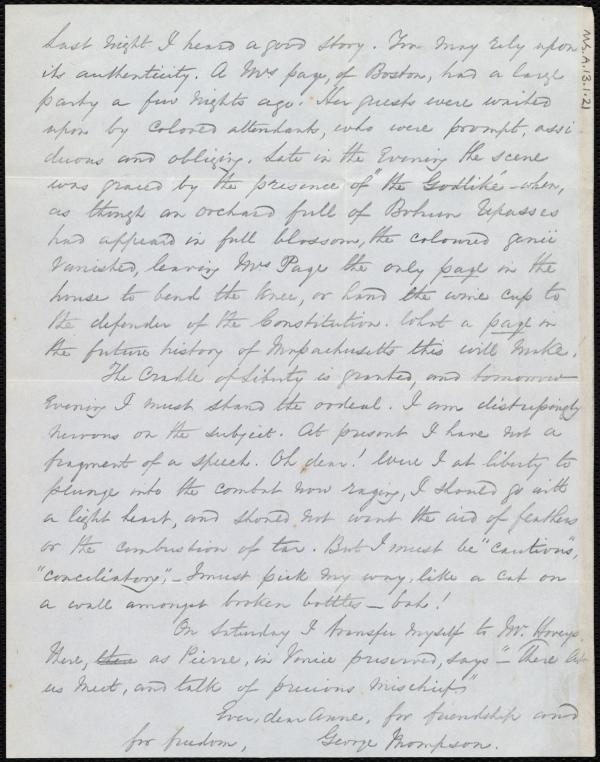 Last Night I heard a good story. You may rely upon
its authenticity. A Mrs page, of Boston, had a large
party a few nights ago. Her guests were waited
upon by colored attendants, who were prompt, assi
duous and obliging. Late in the Evening the scene
was graced by the presence of "the Godlike" – when,
as though an orchard full of Bohun Upasses
had appeared in full blossom, the coloured genii
vanished, leaving Mrs Page the only page in the
house to bend the knee, or hand the wine cup to
the defender of the Constitution. What a page in
the future history of Massachusetts this will make!
The Cradle of Liberty is granted, and tomorrow
Evening I must stand the ordeal. I am distressingly
nervous on the subject. At present I have not a
fragment of a speech. Oh dear! Were I at liberty to
plunge into the combat now raging, I should go with
a light heart, and should not want the aid of feathers
or the combustion of tar. But I must be "cautious",
"conciliatory", – I must pick my way, like a cat on
a wall amongst broken bottles – bah!
On Saturday I transfer myself to Mr. Hovey's.
There, as Pierre, in Venice preserved, says – "There let
us meet, and talk of precious mischief"
Ever, dear Anne, for friendship and
for freedom, George Thompson.
Ms.A.1.3.1.21